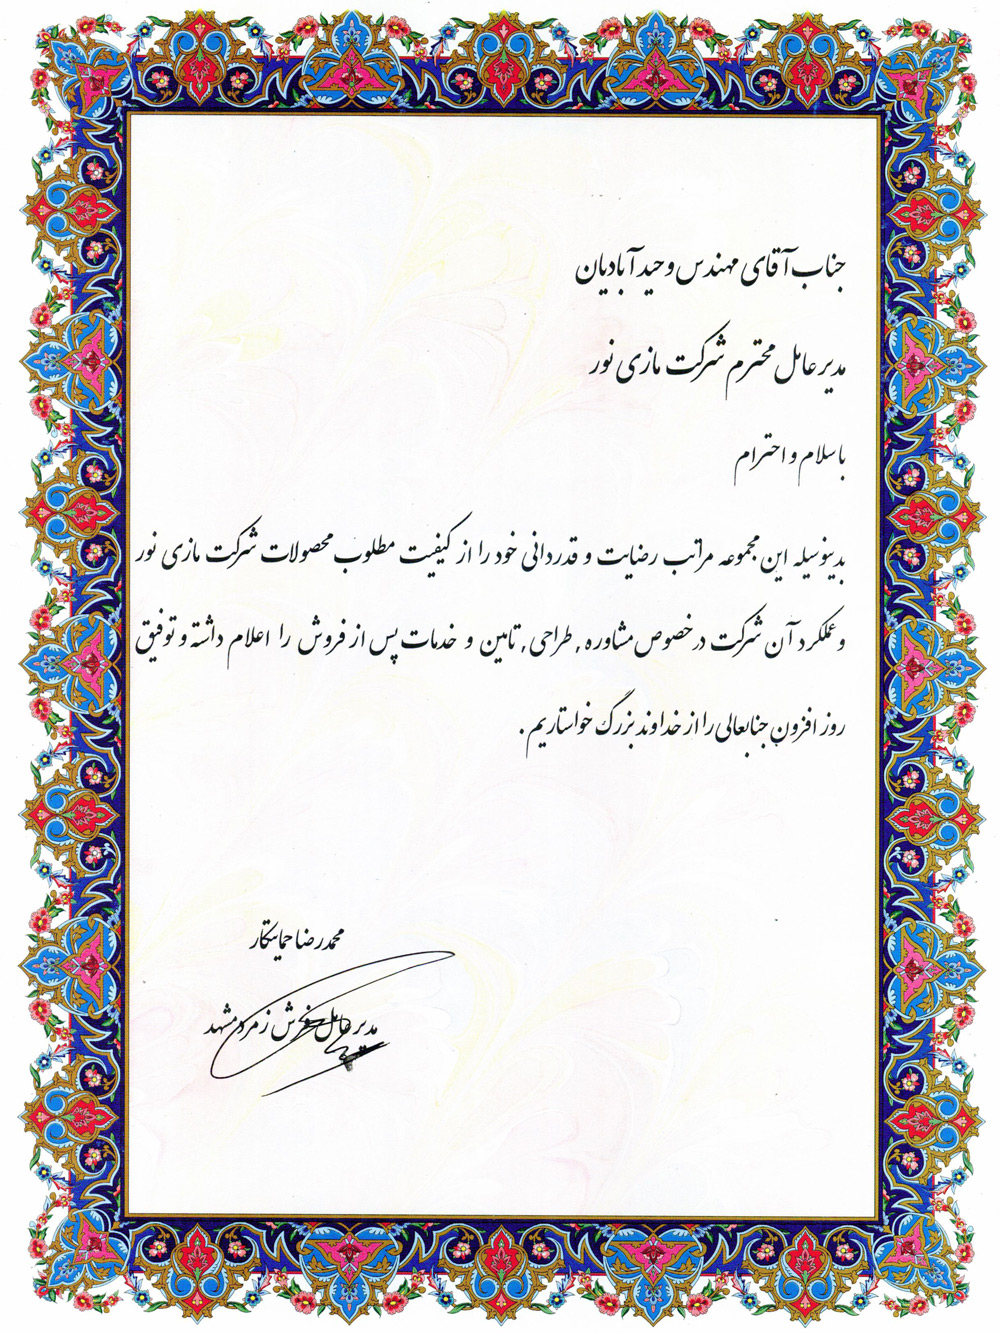 جناب آقای مهندس وحید آبادیان
مدیر عامل محترم شرکت مازی نور
با سلام و احترام
بدینوسیله این مجموعه مراتب رضایت و قدردانی خود را از کیفیت مطلوب محصولات شرکت مازی نور
و عملکرد آن شرکت در خصوص مشاوره , طراحی , تامین و خدمات پس از فروش را اعلام داشته و توفیق
روز افزون جنابعالی را از خداوند بزرگ خواستاریم .
محمدرضا حمایتکار
مدیر عامل فرش زمرد مشهد